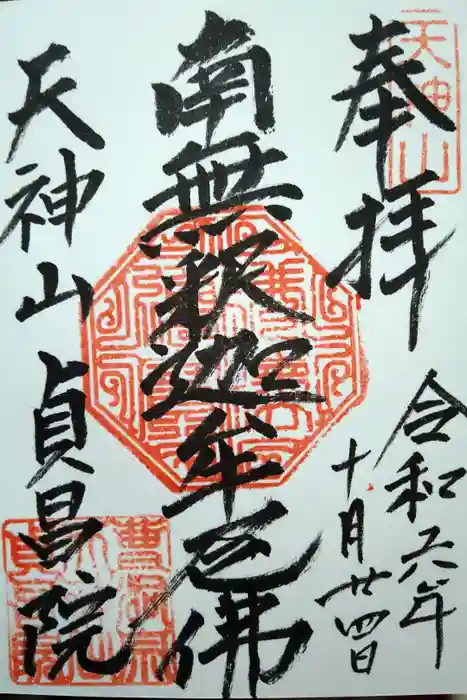 奉拝
令和六年
十月廿四日
南無釈迦牟尼佛
天神山 貞昌院
天神山